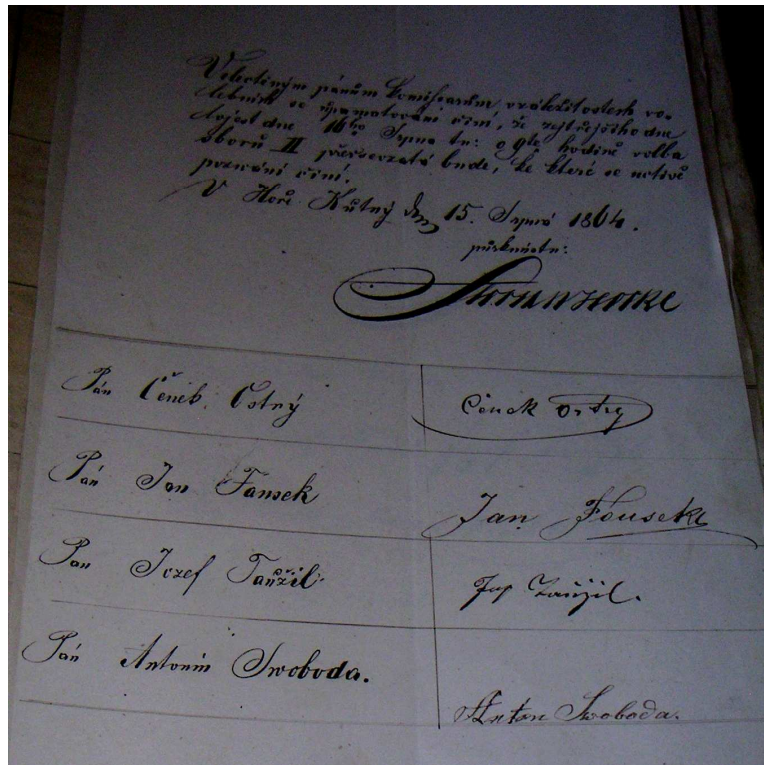 Velectěným pánům komissarům v záležitostech vo-
lebních se upamatování činí, že zejtřejšího dne
to jest dne 16ho Srpna t.r. o 9té hodině volba
sborů II předsevzatá bude, ke které se uctivě
pozvání činí.
V Hoře Kutný dne 15. Srpna 1864.
Pán Čeněk Ostrý
Čeněk Ostrý
Pán Jan Fausek
Jan Fousek
Pan Jozef Taužil.
Jos Taužil.
Pán Antonín Swoboda.
Anton Swoboda.